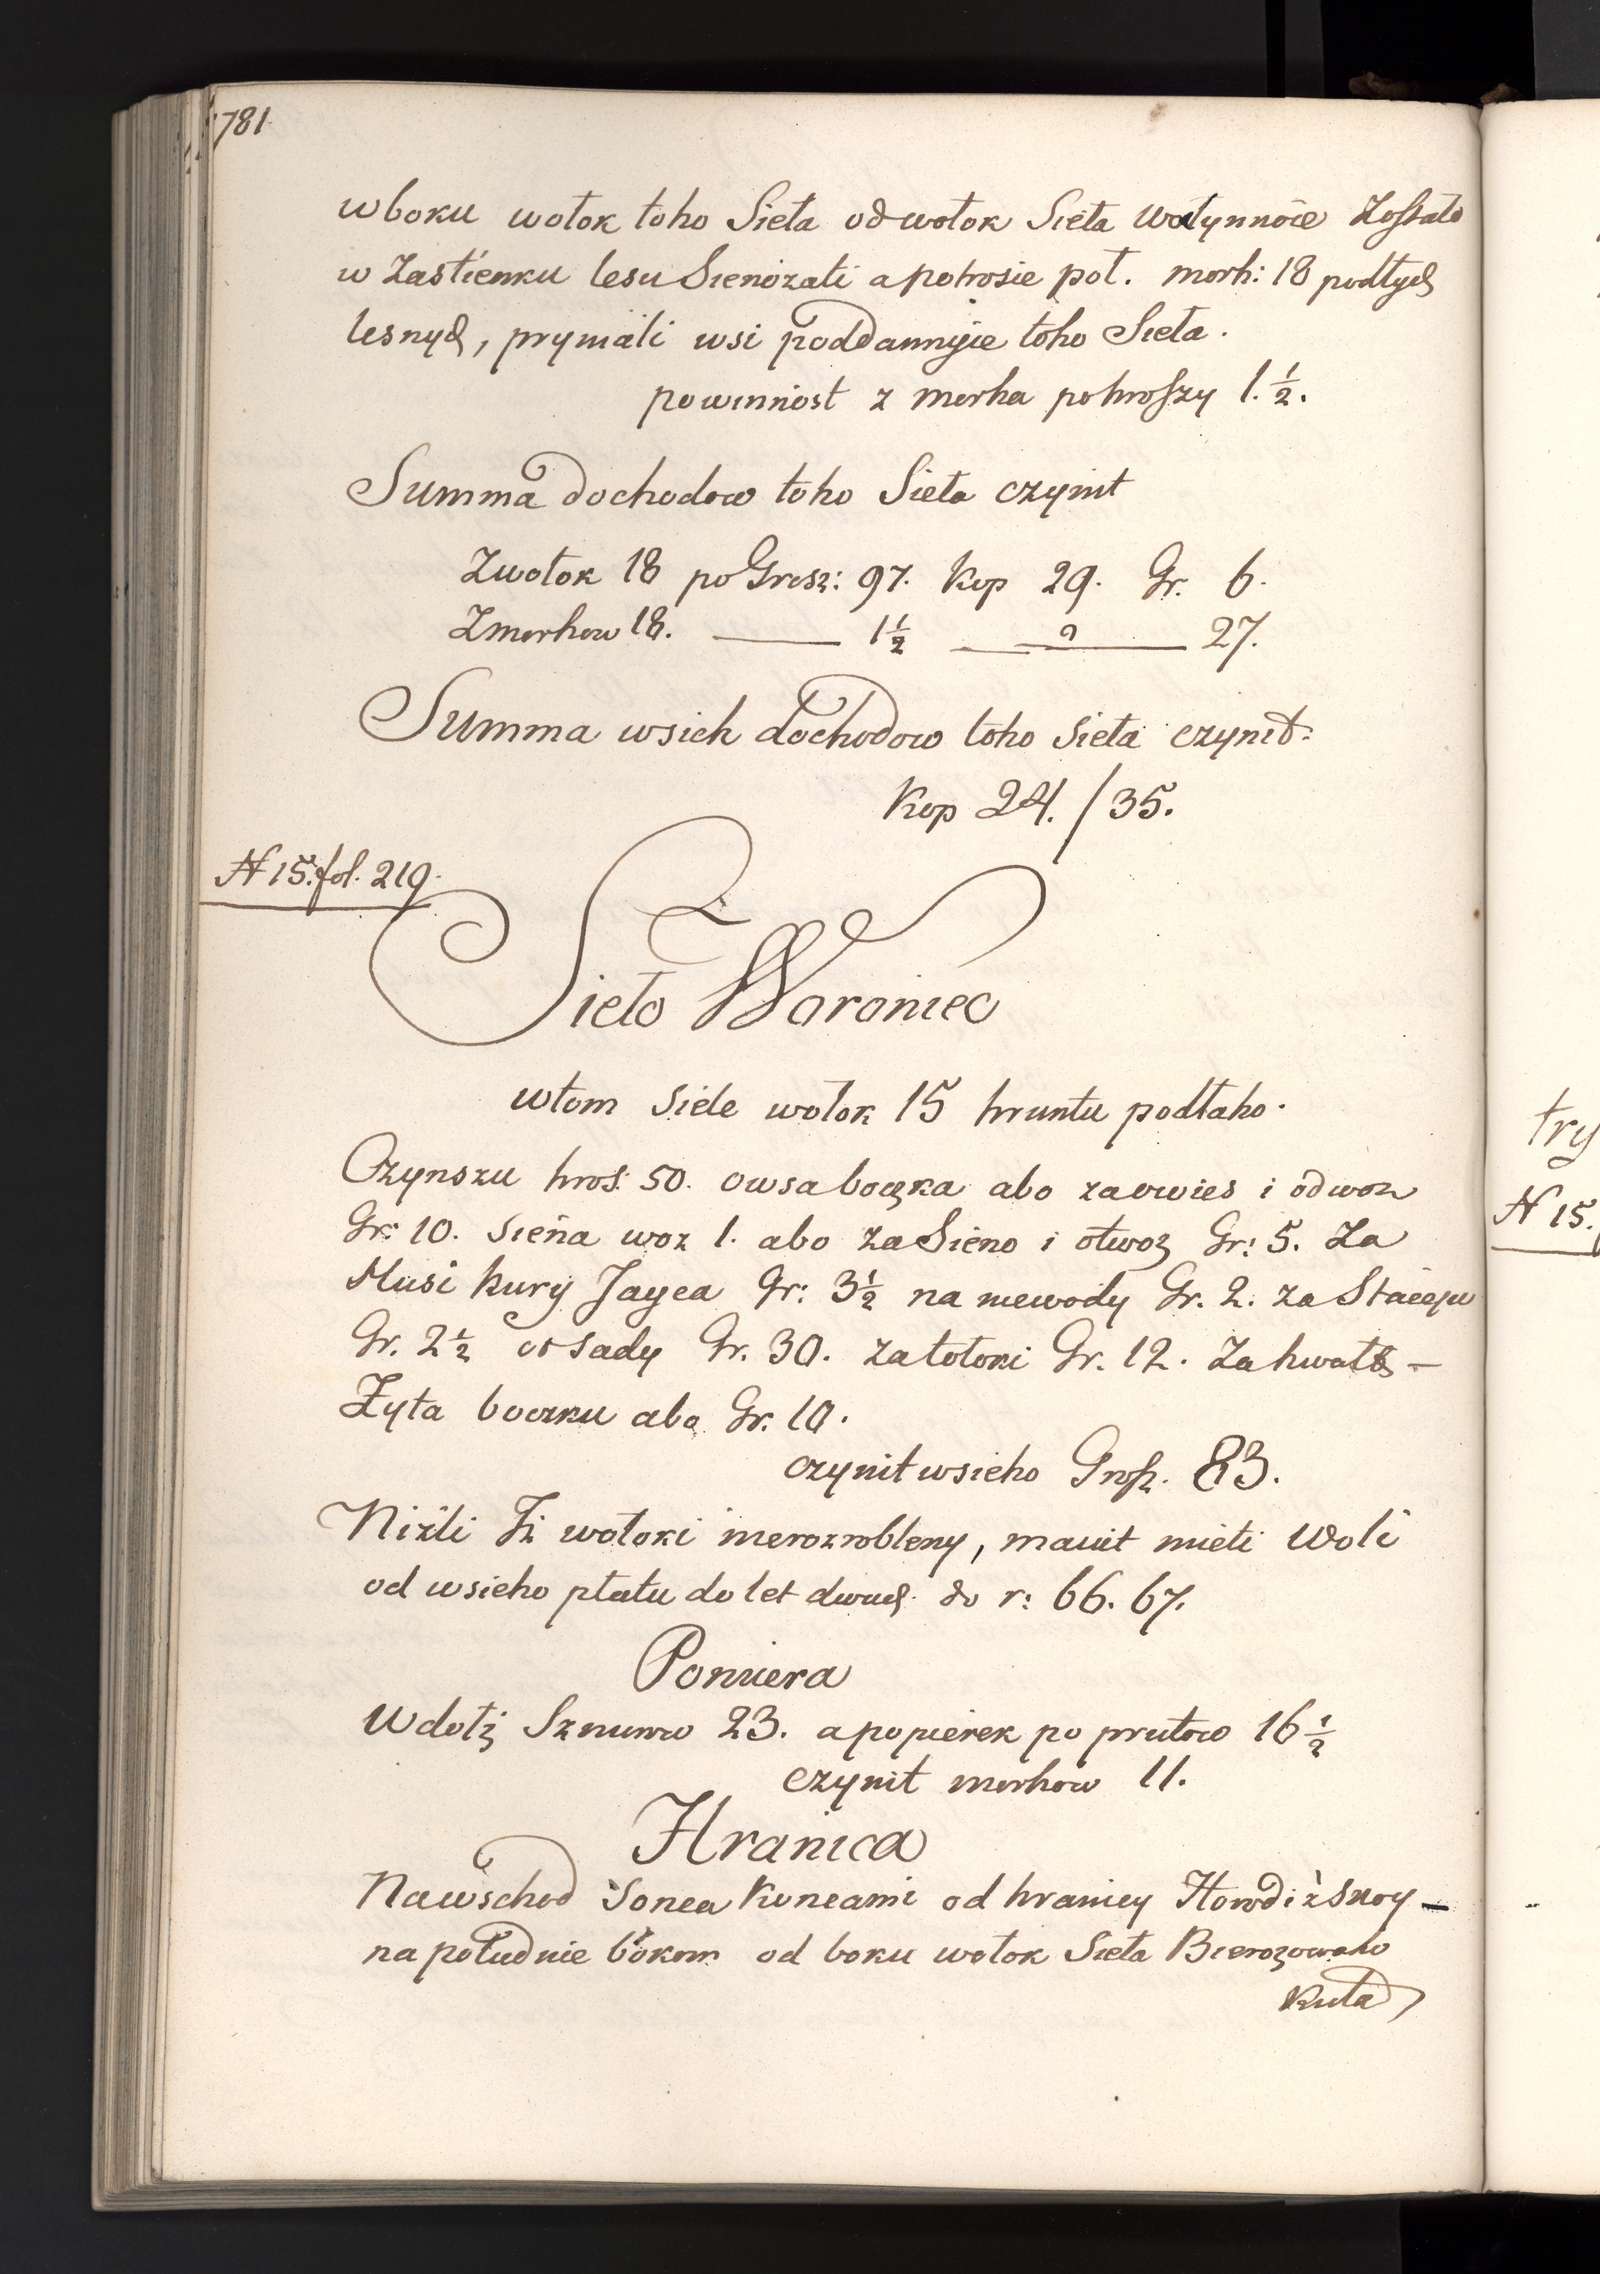 781
wboku wołok toho Sieła od wołok Sieła Wołynnoie Zostało
w Zastienku lesu Sienożati a potrosie poł. morh: 18 podłych
lesnych, prymali wsi poddannyie toho Sieła.
powinnost z morha po hroszy 1. ½.
Summa dochodow toho Sieła czynit
Zwołok 18 po Grosz: 97. Kop 29. Gr. 6.
Zmorhow 18. — 1½ — 27.
Summa wsich dochodow toho Sieła czynit.
Kop 24. / 35.
N 15. fol. 219.
Sieło Woroniec
wtom siele wołok 15 hruntu podłaho.
Czynszu hrosz: 50. owsa boczka abo za owies i odwoz
Gr: 10. siena woz 1. abo za Sieno i otwoz Gr: 5. Za
Husi kury Jayca Gr: 3½ na niewody Gr. 2. za Stacyju
Gr. 2½ osady Gr. 30. za tołoki Gr. 12. Za hwałt —
Żyta boczku abo Gr. 10.
czynit wsieho Grosz. 83.
Niżli Tż wołoki nierozrobleny, maiut mieti woli
od wsieho płatu do let dwuch do r: 66. 67.
Pomiera
Wdołż Sznurow 23. a popierek po prutow 16½
czynit morhow 11.
Hranica
Nawschod sonca Koncami od hranicy
na południe bokom od boku wołok Sieła Bierozowaho
Kuta
try
N 15.